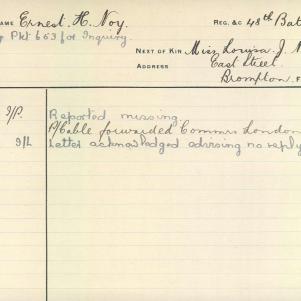 NAME Ernest H. Noy. REG. &C 48th Bat
Pkt 653 for Inquiry.
NEXT OF KIN Miss Louisa J. N
ADDRESS East Street,
Brompton,
Reported missing
P/Cable forwarded Commrs London
Letter acknowledged advising no reply